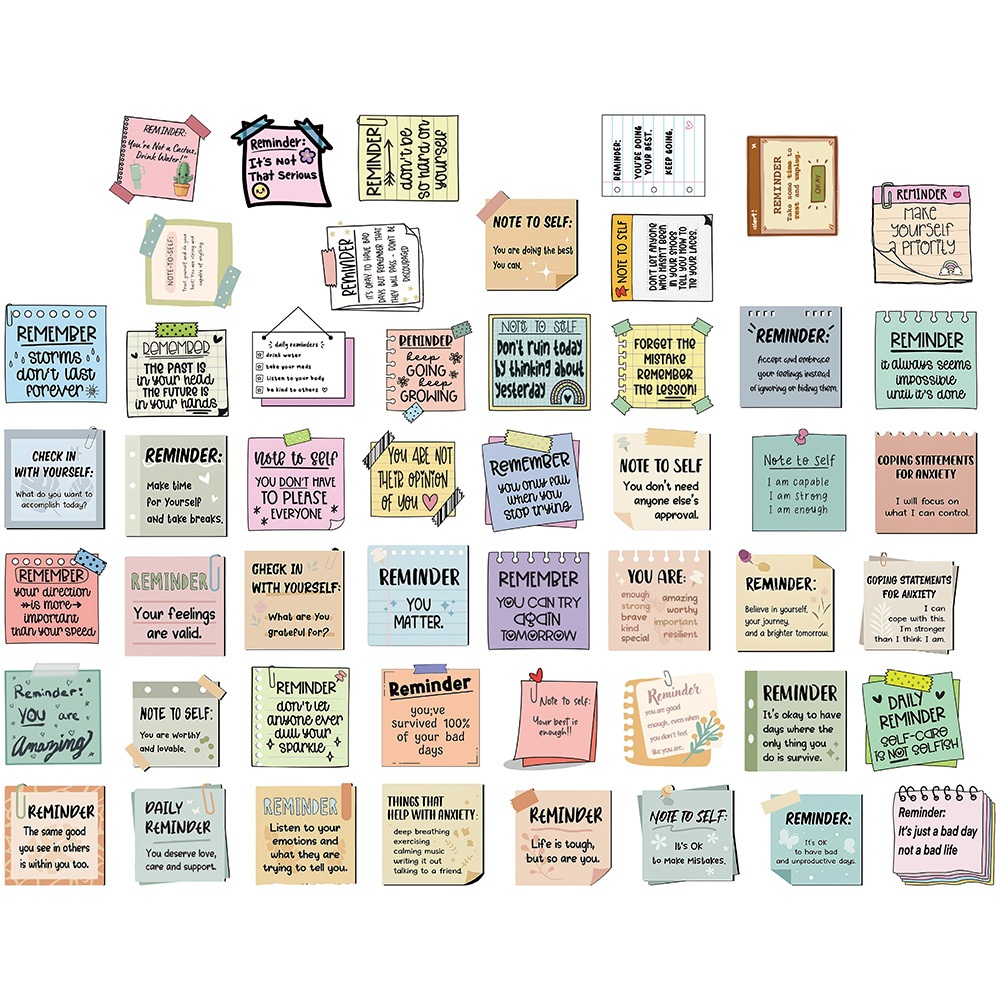 REMINDER:
You're Not a Cactus,
Drink Water!"
Reminder:
It's Not
That Serious
REMINDER
don't be
so hard on
yourself
REMINDER:
YOU'RE DOING
YOUR BEST.
KEEP GOING.
alert!
x
REMINDER
Take some time to
rest and unplug.
OKAY
REMINDER
MAKE
YOURSELF
A PRIORITY
NOTE-TO-SELF:
Trust yourself and do your
best! You are strong and
capable of anything.
REMINDER
IT'S OKAY TO HAVE BAD
DAYS BUT REMEMBER THAT
THEY WILL PASS - DON'T BE
DISCOURAGED
NOTE TO SELF:
You are doing the best
You can.
NOTE TO SELF
DON'T LET ANYONE
WHO HASN'T BEEN
IN YOUR SHOES
TELL YOU HOW TO
TIE YOUR LACES.
REMEMBER
STORMS
don't last
forever
REMEMBER
THE PAST IS
IN YOUR HEAD
THE FUTURE IS
IN YOUR HANDS
daily reminders
drink water
take your meds
Listen to your body
be kind to others
REMINDER
keep
GOING
keep
GROWING
NOTE TO SELF
Don't ruin today
by thinking about
yesterday
FORGET THE
MISTAKE
REMEMBER
THE LESSON!
REMINDER:
Accept and embrace
your feelings instead
of ignoring or hiding them.
REMINDER
it always seems
impossible
until it's done
CHECK IN
WITH YOURSELF:
What do you want to
accomplish today?
REMINDER:
Make time
for Yourself
and take breaks.
NOTE TO SELF
YOU DON'T HAVE
TO PLEASE
EVERYONE
YOU ARE NOT
THEIR OPINION
OF YOU
REMEMBER
YOU ONLY FAIL
WHEN YOU
STOP TRYING
NOTE TO SELF
You don't need
anyone else's
approval.
Note to self
I am capable
I am strong
I am enough
COPING STATEMENTS
FOR ANXIETY
I will focus on
what I can control.
REMEMBER
your direction
is more
important
than your speed
REMINDER
Your feelings
are valid.
CHECK IN
WITH YOURSELF:
What are You
grateful for?
REMINDER
YOU
MATTER.
REMEMBER
YOU CAN TRY
AGAIN
TOMORROW
YOU ARE:
enough amazing
strong worthy
brave important
kind resilient
special
REMINDER:
Believe in yourself,
your journey,
and a brighter tomorrow.
COPING STATEMENTS
FOR ANXIETY
I can
cope with this.
I'm stronger
than I think I am.
Reminder:
YOU are
Amazing
NOTE TO SELF:
You are worthy
and lovable.
REMINDER
DON'T LET
ANYONE EVER
DULL YOUR
SPARKLE
Reminder
you;ve
survived 100%
of your bad
days
Note to self:
Your best is
enough!!
Reminder
you are good
enough, even when
you don't feel
like you are.
REMINDER
It's okay to have
days where the
only thing you
do is survive.
DAILY
REMINDER
SELF-CARE
IS NOT SELFISH
REMINDER
The same good
you see in others
is within you too.
DAILY
REMINDER
You deserve love,
care and support.
REMINDER
Listen to your
emotions and
what they are
trying to tell you.
THINGS THAT
HELP WITH ANXIETY:
deep breathing
exercising
calming music
writing it out
talking to a friend
REMINDER
Life is tough,
but so are you.
NOTE TO SELF:
It's Ok
to Make Mistakes.
REMINDER:
It's OK
to have bad
and unproductive days.
Reminder:
It's just a bad day
not a bad life